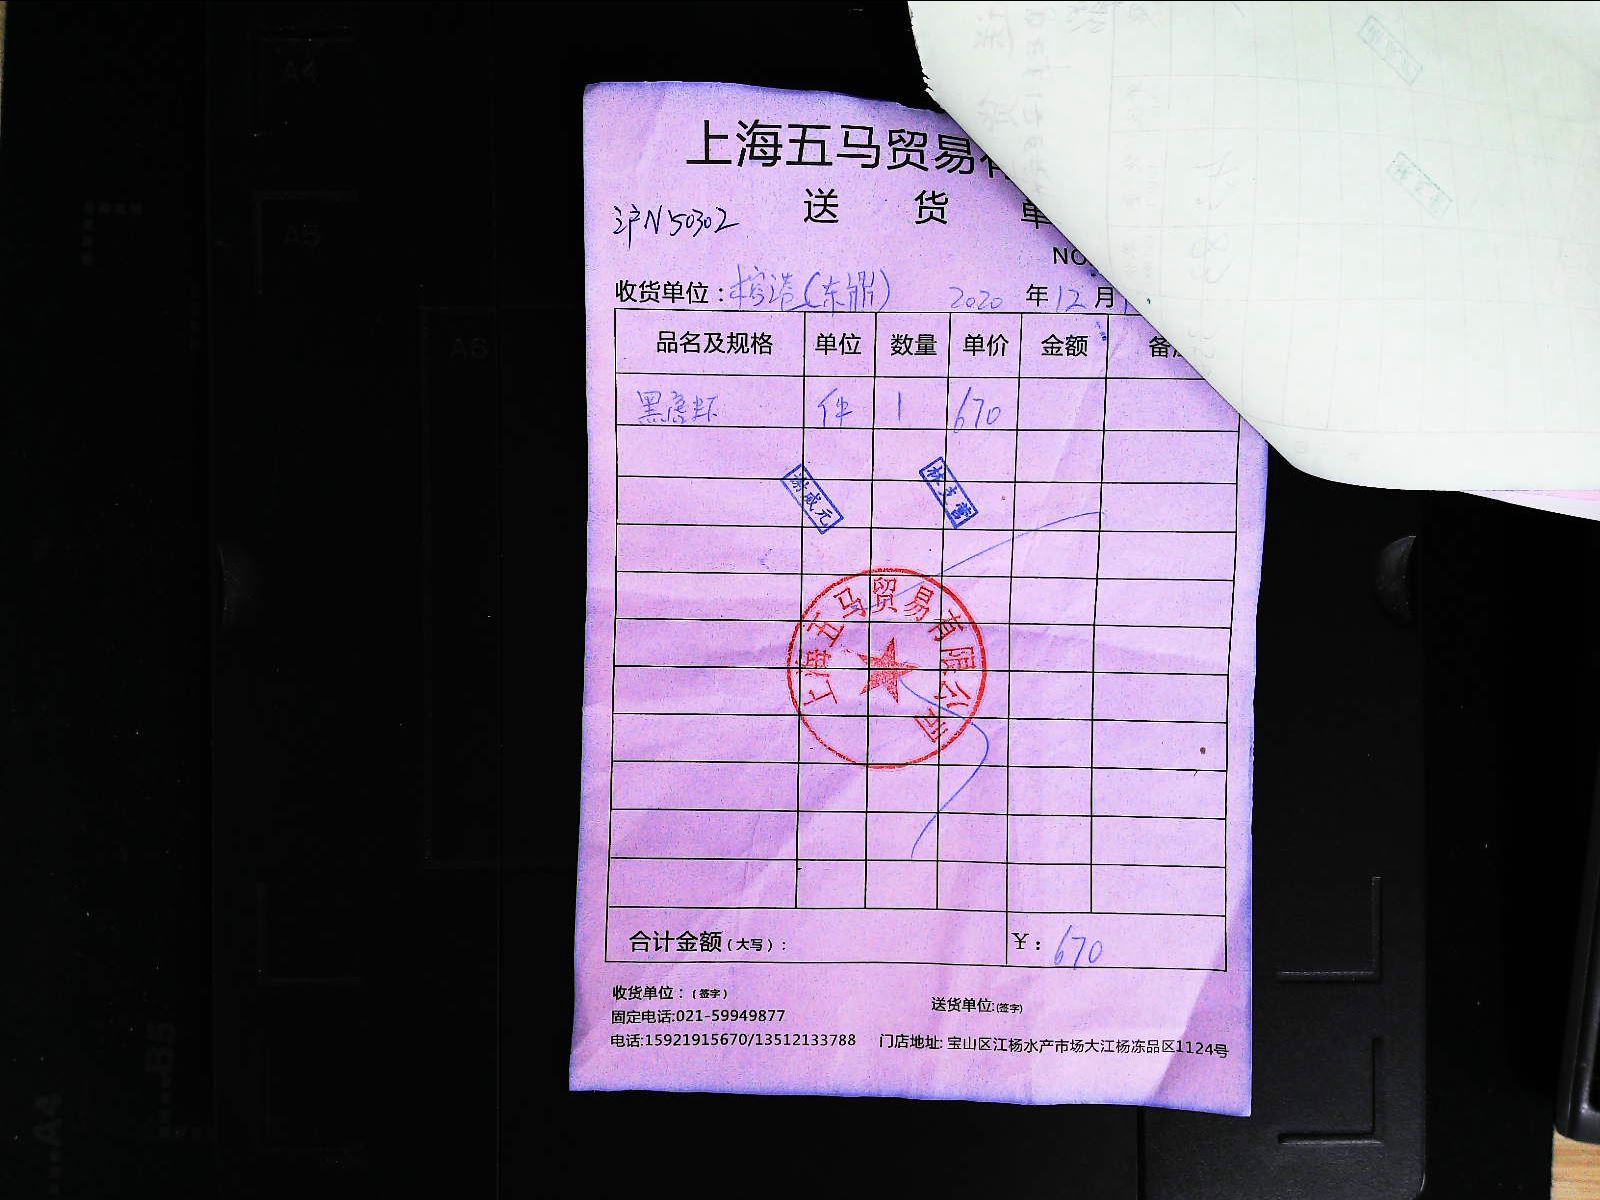 上海五马贸易
送 货 单
沪N50302
NO
收货单位：槟港(东鼎) 2020 年 12 月
品名及规格 单位 数量 单价 金额 备
黑虎虾 件 1 670
谢咸元
上海五马贸易有限公司
合计金额（大写）： ￥：670
收货单位：（签字） 送货单位:(签字)
固定电话:021-59949877
电话:15921915670/13512133788 门店地址: 宝山区江杨水产市场大江杨冻品区1124号
A4
A5
A6
B5
A4